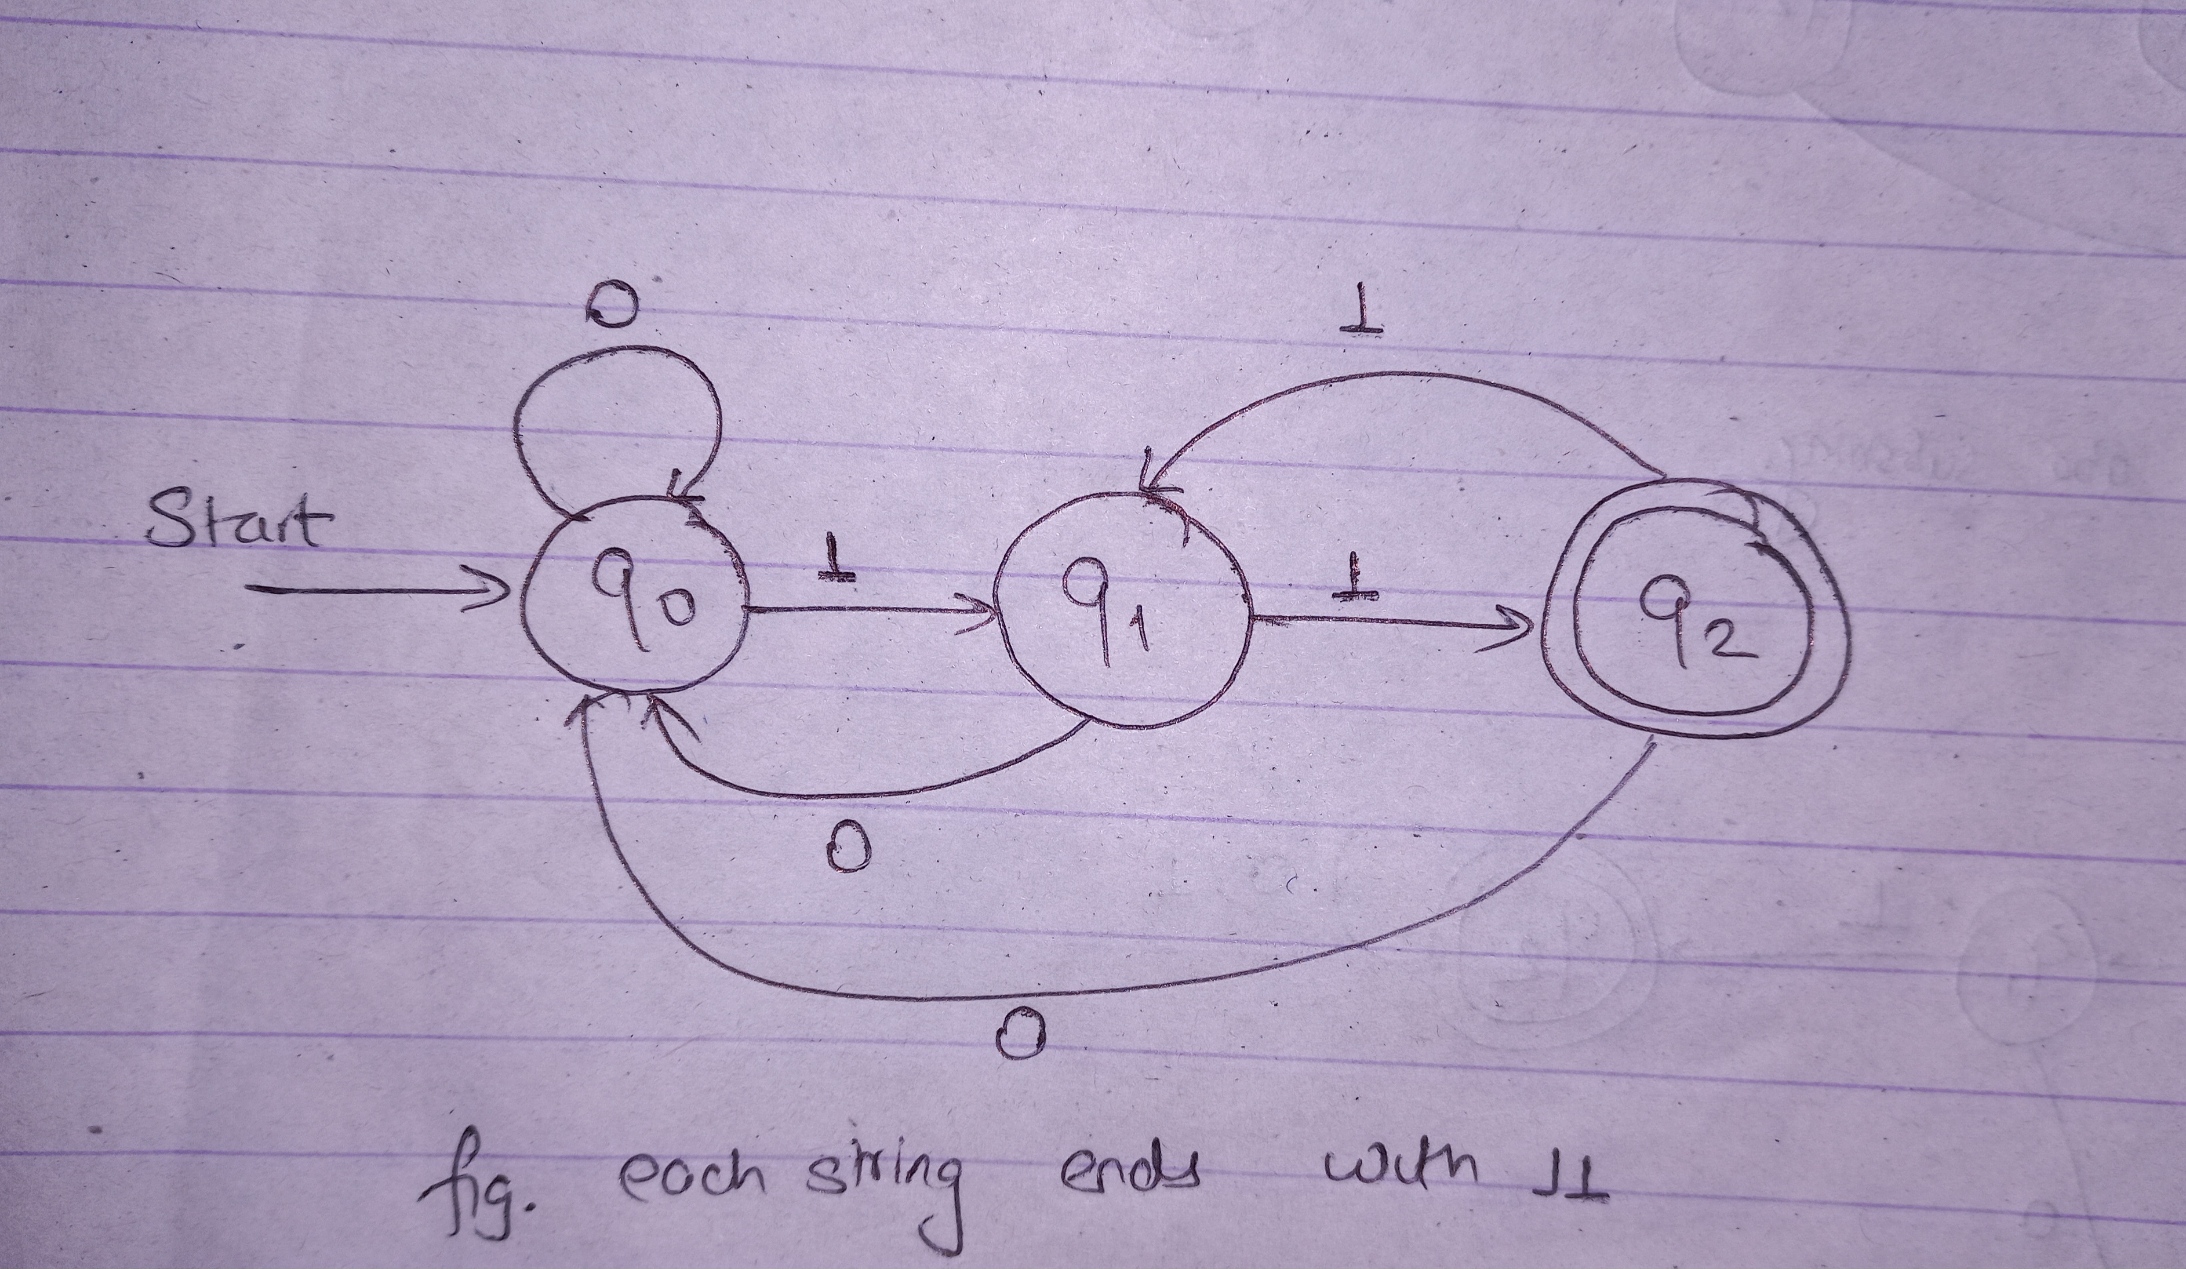 0
1
Start
q0
1
q1
1
q2
0
0
fig. each string ends with 11